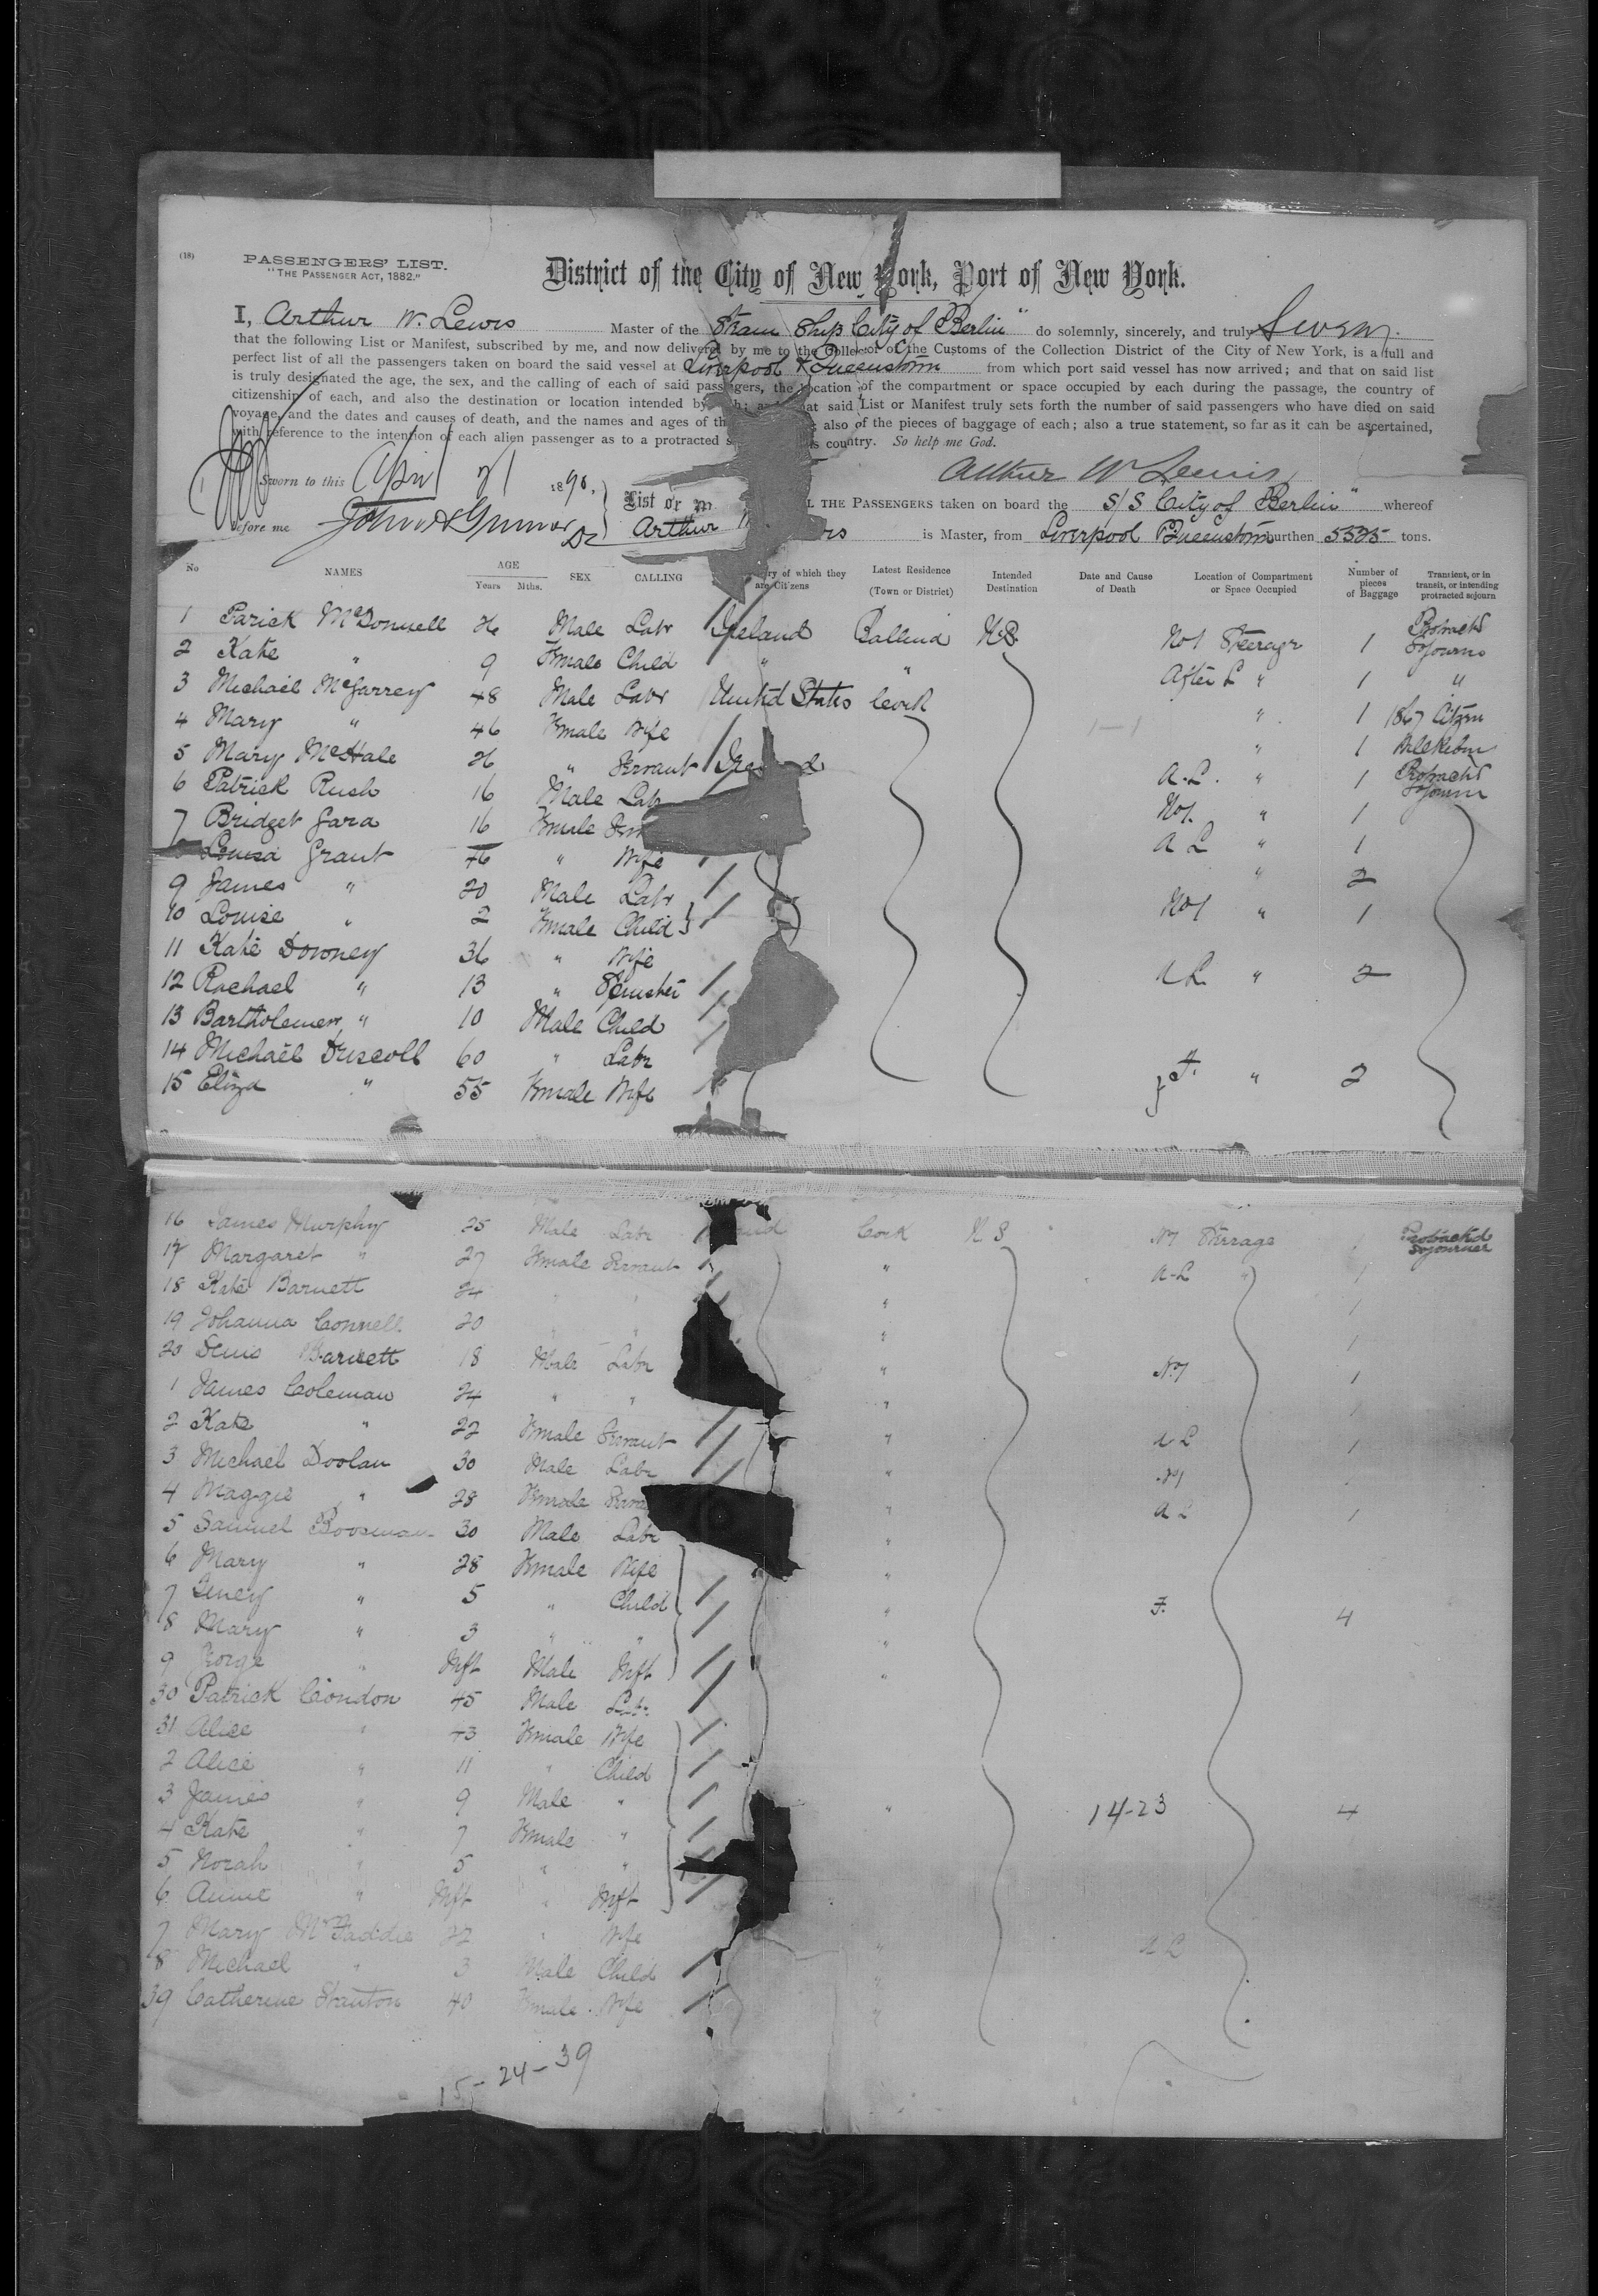 (18)
PASSENGERS' LIST.
"THE PASSENGER ACT, 1882."
District of the City of New York, Port of New York.
I, Arthur W. Lewis Master of the Steam Ship City of Berlin" do solemnly, sincerely, and truly Swear
that the following List or Manifest, subscribed by me, and now delivered by me to the Collector of the Customs of the Collection District of the City of New York, is a full and
perfect list of all the passengers taken on board the said vessel at Liverpool & Queenstown from which port said vessel has now arrived; and that on said list
is truly designated the age, the sex, and the calling of each of said passengers, the location of the compartment or space occupied by each during the passage, the country of
citizenship of each, and also the destination or location intended by said List or Manifest truly sets forth the number of said passengers who have died on said
voyage, and the dates and causes of death, and the names and ages of also of the pieces of baggage of each; also a true statement, so far as it can be ascertained,
with reference to the intention of each alien passenger as to a protracted country. So help me God.
Arthur W Lewis
Sworn to this April 1890.
before me
List or
THE PASSENGERS taken on board the S/S City of Berlin" whereof
Arthur is Master, from Liverpool Queenstown burthen 5525 tons.
No NAMES AGE Years Mths. SEX CALLING of which they are Citizens Latest Residence (Town or District) Intended Destination Date and Cause of Death Location of Compartment or Space Occupied Number of pieces of Baggage Transient, or in transit, or intending protracted sojourn
1 Parick McDonnell 26 Male Labr Ireland Ballina No1 Steerage 1 Protracted Sojourn
2 Kate " 9 Female Child " " After L " 1 "
3 Michael McGarrey 48 Male Labr United States Cork " 1 1867 Citizen
4 Mary " 46 Female Wife " 1
5 Mary McHale 26 " Servant A.L. " 1 Protracted Sojourn
6 Patrick Rush 16 Male Labr No1. " 1
7 Bridget Gara 16 Female A L " 1
Louisa Grant 46 " Wife " 2
9 James " 20 Male Labr No1 " 1
10 Louise " 2 Female Child
11 Kate Downey 36 " Wife
12 Rachael " 13 " Spinster A L " 2
13 Bartholemew " 10 Male Child
14 Michael Driscoll 60 " Labr
15 Eliza " 55 Female Wife " 2
16 James Murphy 25 Male Labr Cork N S No1 Steerage 1 Protracted Sojourner
17 Margaret " 27 Female Servant " A-L " 1
18 Kate Barnett 24 " 1
19 Johanna Connell 20 " 1
20 Denis Barnett 18 Male Labr " No1 1
1 James Coleman 24 " " "
2 Kate " 22 Female Servant " A L 1
3 Michael Doolan 30 Male Labr " No1
4 Maggie " 28 Female " A L 1
5 Samuel Boosman 30 Male Labr "
6 Mary " 28 Female Wife "
7 " 5 " Child " F. 4
8 Mary " 3 " " "
9 George " Inft Male Inft "
30 Patrick Condon 45 Male Labr
31 Alice " 43 Female Wife
2 Alice " 11 " Child
3 James " 9 Male " " 14-23 4
4 Kate " 7 Female "
5 Norah " 5 " "
6 Annie " Inft " Inft
7 Mary McFaddie 22 " Wife " A L
8 Michael " 3 Male Child "
39 Catherine Stanton 40 Female Wife "
15-24-39